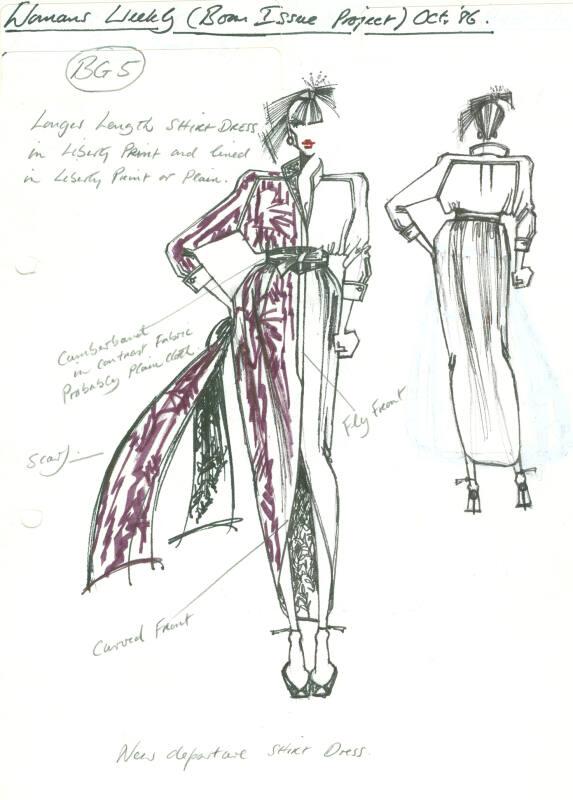 Womans Weekly (Boom Issue Project) Oct. '86.
BG5
Longer Length SHIRT DRESS
in Liberty Print and lined
in Liberty Print or Plain.
Cumberband
in contrast Fabric
Probably Plain Cloth
Fly Front
Scarf
Curved Front
New departure SHIRT DRESS.